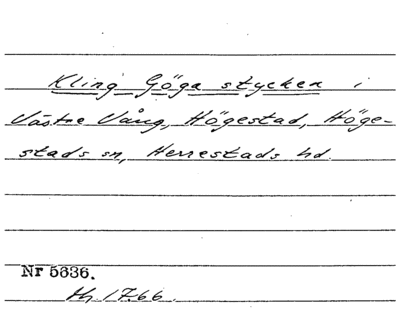 Kling Göga stycken i
Västre Vång, Högestad, Höge-
stads sn, Herrestads hd.
Nr 5636.
th. 1766.